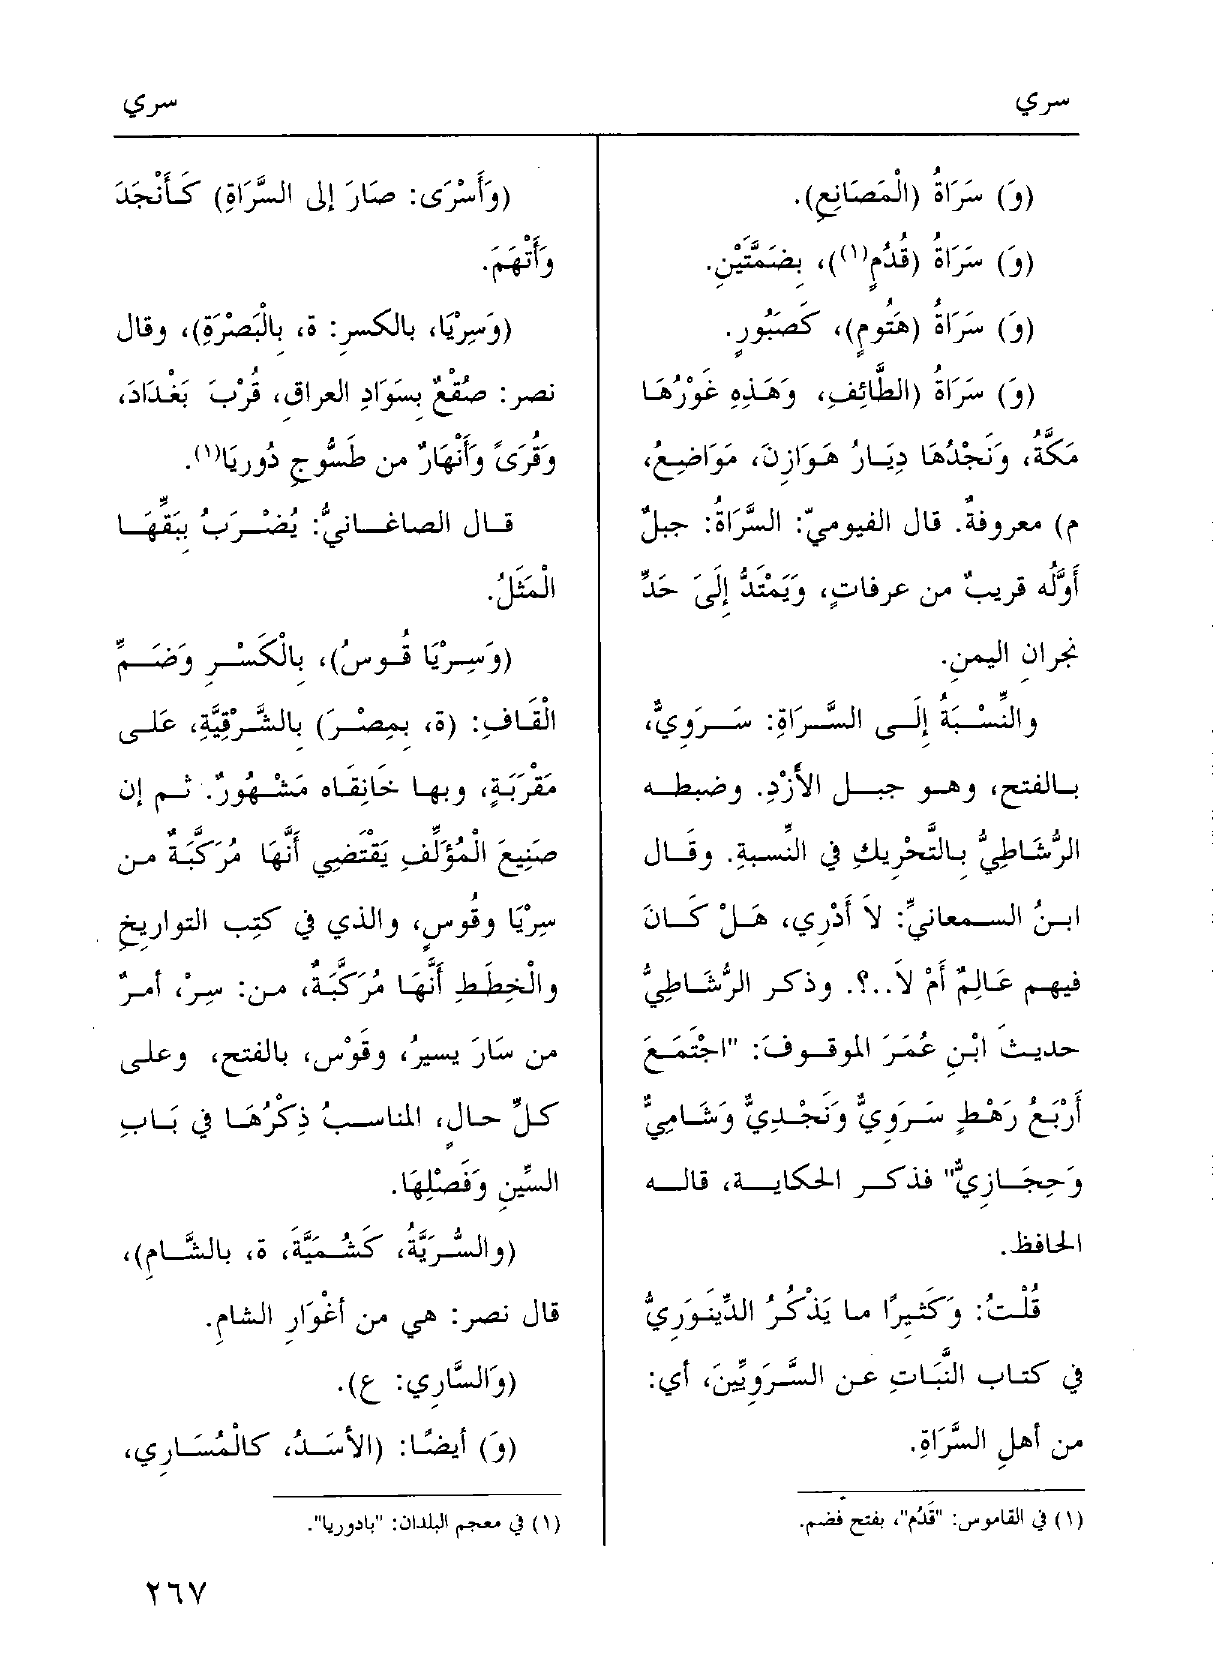 سري
سري
(وَ) سَرَاةُ (الْمَصَانِعِ).
(وَ) سَرَاةُ (قُدُمٍ(١))، بِضَمَّتَيْنِ.
(وَ) سَرَاةُ (هَتُومٍ)، كَصَبُورٍ.
(وَ) سَرَاةُ (الطَّائِفِ، وَهَذِهِ غَوْرُهَا
مَكَّةُ، وَنَجْدُهَا دِيَارُ هَوَازِنَ، مَوَاضِعُ،
م) معروفةٌ. قال الفيوميّ: السَّرَاةُ: جبلٌ
أوَّلُه قريبٌ من عرفاتٍ، وَيَمْتَدُّ إِلَىَ حَدِّ
نجرانِ اليمنِ.
والنِّسْبَةُ إِلَى السَّرَاةِ: سَرَوِيٌّ،
بالفتح، وهو جبل الأَزْدِ. وضبطه
الرُّشَاطِيُّ بِالتَّحْرِيكِ في النِّسبةِ. وقَال
ابنُ السمعانيِّ: لاَ أَدْرِي، هَلْ كَانَ
فيهم عَالِمٌ أَمْ لاَ..؟. وذكر الرُّشَاطِيُّ
حديثَ ابْنِ عُمَرَ الموقوفَ: "اجْتَمَعَ
أَرْبَعُ رَهْطٍ سَرَوِيٌّ وَنَجْدِيٌّ وَشَامِيٌّ
وَحِجَازِيٌّ" فذكر الحكاية، قاله
الحافظ.
قُلْتُ: وَكَثِيرًا ما يَذْكُرُ الدِّينَوَرِيُّ
في كتاب النَّبَاتِ عن السَّرَوِيِّينَ، أي:
من أهلِ السَّرَاةِ.
(١) في القاموس: "قَدُم"، بفتح فضم.
(وَأَسْرَى: صَارَ إلى السَّرَاةِ) كَأَنْجَدَ
وَأَتْهَمَ.
(وَسِرْيَا، بالكسرِ: ة، بِالْبَصْرَةِ)، وقال
نصر: صُقْعٌ بِسَوَادِ العراقِ، قُرْبَ بَغْدَادَ،
وَقُرَىً وَأَنْهَارٌ من طَسُّوجِ دُورِيَا(١).
قال الصاغانيُّ: يُضْرَبُ بِبَقِّهَا
الْمَثَلُ.
(وَسِرْيَا قُوسُ)، بِالْكَسْرِ وَضَمِّ
الْقَافِ: (ة، بِمِصْرَ) بِالشَّرْقِيَّةِ، عَلى
مَقْرَبَةٍ، وبها خَانِقَاه مَشْهُورٌ. ثم إن
صَنِيعَ الْمُؤَلِّفِ يَقْتَضِي أَنَّهَا مُرَكَّبَةٌ من
سِرْيَا وقُوسٍ، والذي في كتبِ التواريخِ
والْخِطَطِ أَنَّهَا مُرَكَّبَةٌ، من: سِرْ، أمرٌ
من سَارَ يسيرُ، وقَوْس، بالفتح، وعلى
كلِّ حالٍ، المناسبُ ذِكْرُهَا في بَابِ
السِّينِ وَفَصْلِهَا.
(والسُّرَيَّةُ، كَسُمَيَّةَ، ة، بالشَّامِ)،
قال نصر: هي من أغْوَارِ الشامِ.
(وَالسَّارِي: ع).
(وَ) أيضًا: (الأَسَدُ، كالْمُسَارِي،
(١) في معجم البلدان: "بادوريا".
٢٦٧